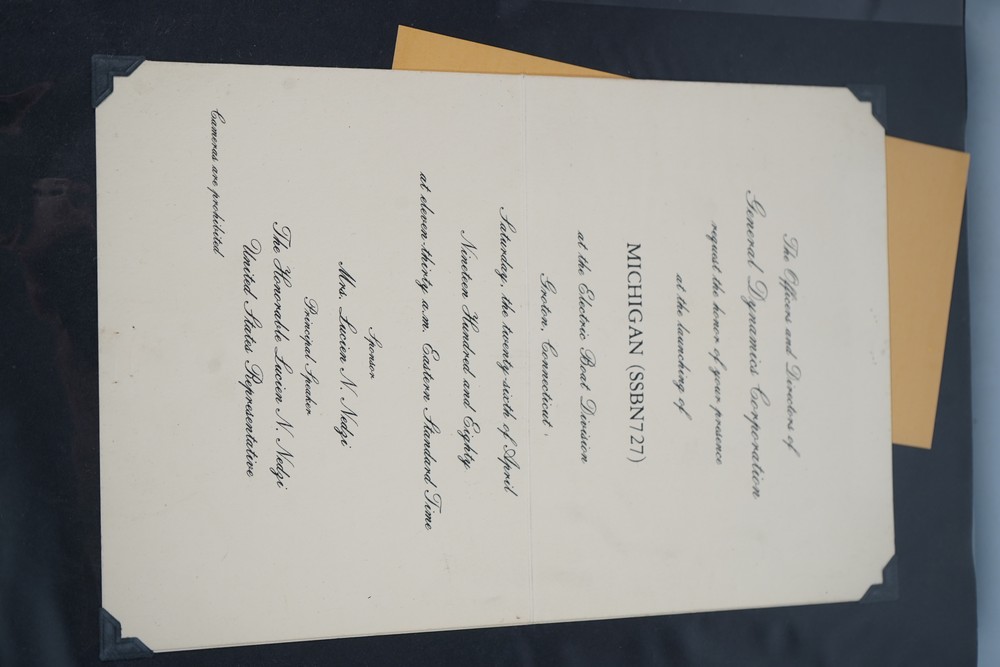 The Officers and Directors of
General Dynamics Corporation
request the honor of your presence
at the launching of
MICHIGAN (SSBN727)
at the Electric Boat Division
Groton, Connecticut
Saturday, the twenty-sixth of April
Nineteen Hundred and Eighty
at eleven-thirty a.m. Eastern Standard Time
Sponsor
Mrs. Lucien N. Nedzi
Principal Speaker
The Honorable Lucien N. Nedzi
United States Representative
Cameras are prohibited